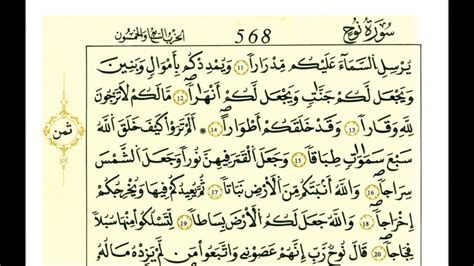 سُورَةُ نُوحٍ 568 الحزب السابع والخمسون
يُرْسِلِ السَّمَآءَ عَلَيْكُم مِّدْرَاراً 11 وَيُمْدِدْكُم بِأَمْوَالٍ وَبَنِينَ
وَيَجْعَل لَّكُمْ جَنَّٰتٍ وَيَجْعَل لَّكُمْ أَنْهَٰراً 12 مَالَكُمْ لَا تَرْجُونَ
لِلهِ وَقَاراً 13 وَقَدْ خَلَقَكُمْ أَطْوَاراً 14 اَلَمْ تَرَوْاْ كَيْفَ خَلَقَ اللَّهُ
سَبْعَ سَمَٰوَٰتٍ طِبَاقاً 15 وَجَعَلَ الْقَمَرَ فِيهِنَّ نُوراً وَجَعَلَ الشَّمْسَ
سِرَاجاً 16 وَاللَّهُ أَنۢبَتَكُم مِّنَ الْأَرْضِ نَبَاتاً 17 ثُمَّ يُعِيدُكُمْ فِيهَا وَيُخْرِجُكُمْ
إِخْرَاجاً 18 وَاللَّهُ جَعَلَ لَكُمُ الْأَرْضَ بِسَاطاً 19 لِّتَسْلُكُواْ مِنْهَا سُبُلاً
فِجَاجاً 20 قَالَ نُوحٌ رَّبِّ إِنَّهُمْ عَصَوْنِي وَاتَّبَعُواْ مَن لَّمْ يَزِدْهُ مَالُهُ
ثمن